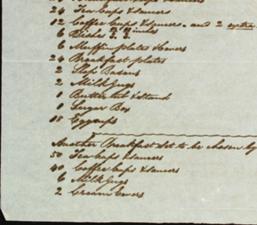 24 Tea Cups & Saucers
12 Coffee Cups & Saucers - and 2 extra
6 Dishes
6 Muffin plates & Covers
24 Breakfast plates
2 Slop Basons
2 Milk Jugs
1 Butter tub & Stand
1 Sugar Box
18 Eggcups
Another Breakfast Set to be chosen by
50 Tea Cups & Saucers
40 Coffee Cups & Saucers
6 Milk Jugs
2 Cream Ewers